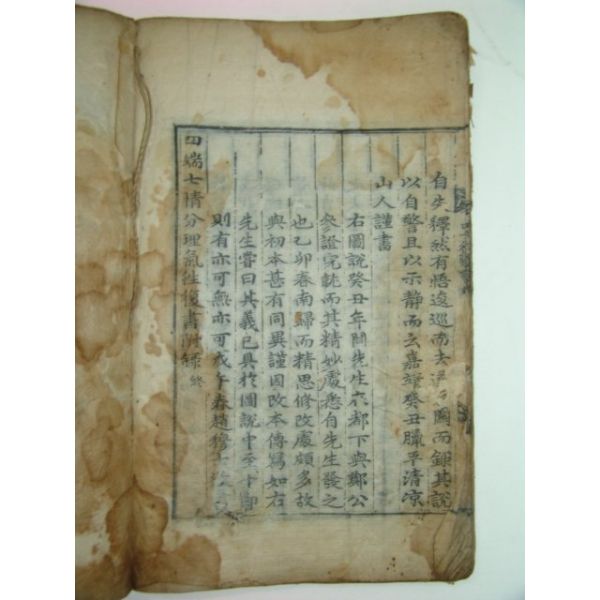 自失釋然有悟逡巡而去 因而錄其說
以自警且以示靜而玄嘉靖癸丑臘平清涼
山人謹書
右圖說癸丑年間先生在都下與鄭公
參證完就而其精妙處悉自先生發之
也乙卯春南歸而精思修改處頗多故
與初本甚有同異謹因改本傳寫如右
先生嘗曰其義已具於圖說中至十
則有亦可無亦可戊午春趙穆士敬
四端七情分理氣往復書附錄 終